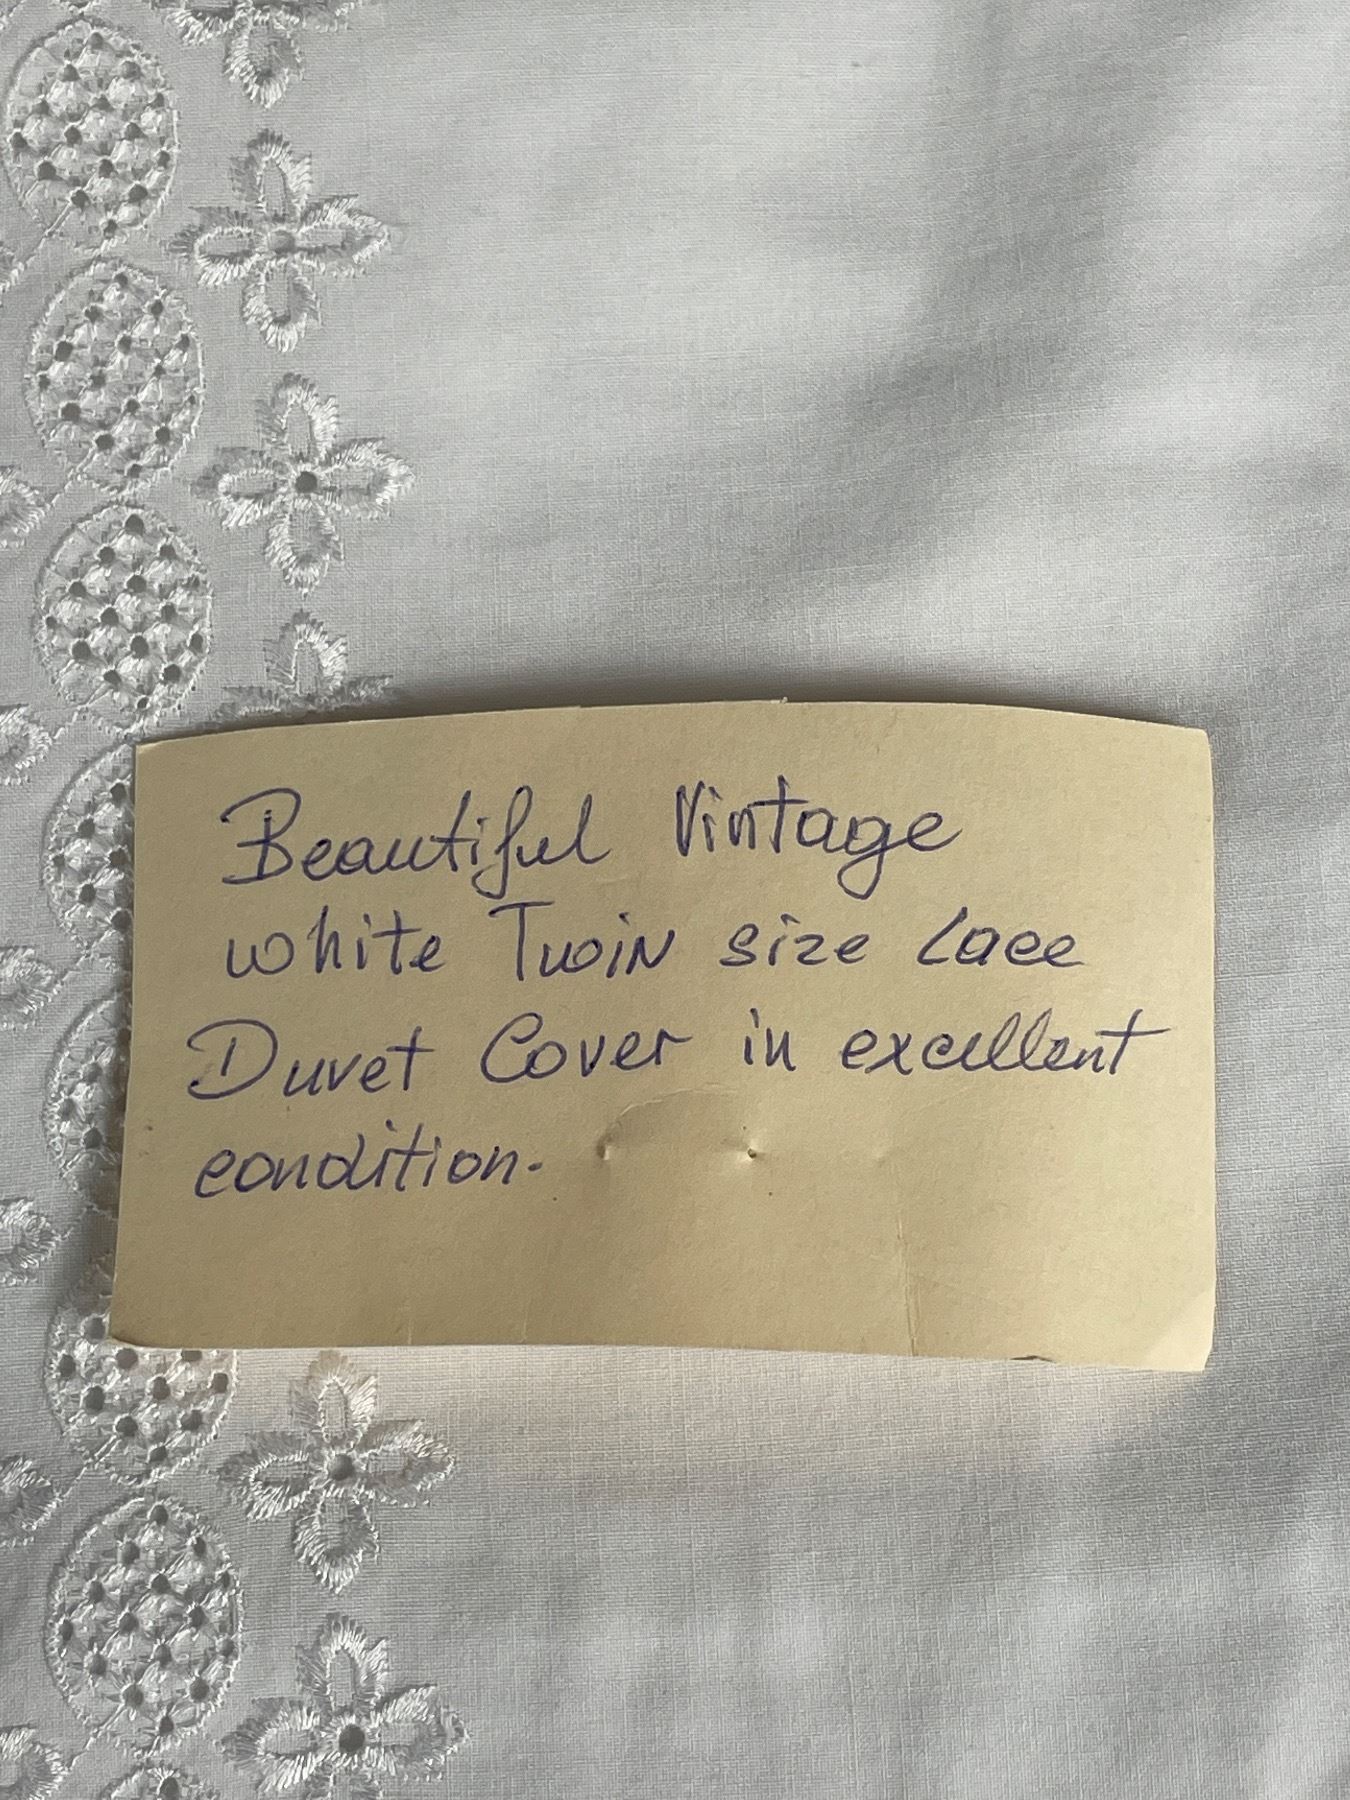 Beautiful Vintage
white Twin size Lace
Duvet Cover in excellent
condition.